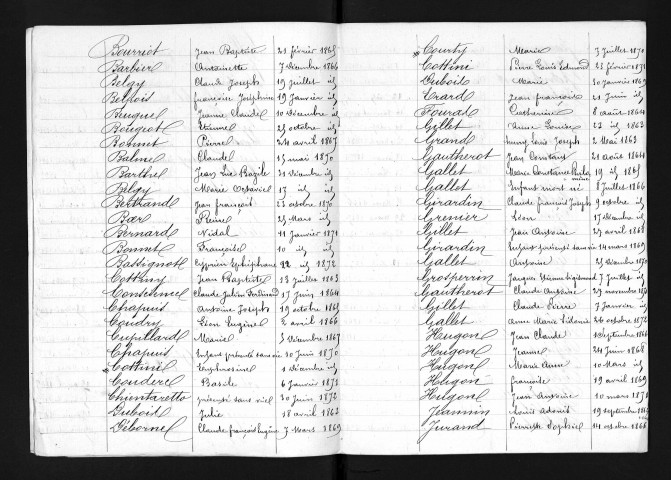 Bourriot Jean Baptiste 21 février 1865
Barbier Antoinette 7 décembre 1866
Belgy Claude Joseph 19 Juillet id
Belpois françoise Joséphine 19 Janvier id
Beuque Jeanne Claude 10 décembre id
Bougeot Etienne 25 octobre id
Bonnet Pierre 24 avril 1867
Balme Claude 15 mai 1870
Barthel Jean 21 décembre id
Belgy Marie 13 id id
Bertrand Jean françois 23 octobre 1870
Baer Reine 25 Mars id
Bernard Vidal 11 Janvier 1871
Bonnet Françoise 10 id id
Bassignot Cyprien Epiphane 22 id 1872
Jean Baptiste 13 Juillet 1863
Claude Julien Ferdinand 17 Juin 1864
Chapuis Antoine Joseph 19 octobre 1865
Coudry Léon Eugène 2 avril 1866
Cupillard Marie 5 décembre 1867
Chapuis Enfant présenté sans vie 30 Juin 1870
Cottiné Euphrosine 1 décembre id
Couderc Basile 6 Janvier 1871
présenté sans vie 30 Juin 1872
Dubois Julie 18 avril 1863
Claude françois Eugène 7 Mars 1869
Courty Marie 3 Juillet 1870
Cottini Pierre Louis Edmond 23 février 1871
Dubois Marie 30 Janvier 1869
Erard Jean françois 21 Juin id
Catherine 8 août 1864
Gillet Anne Louise 22 id 1863
Grand Louis Joseph 2 Mai 1863
Gautherot Jean Constant 21 août 1864
Gallet Marie Constance 19 id 1865
Gallet Enfant mort né 8 Juillet 1866
Girardin Claude françois Joseph 9 octobre id
Grenier Léon 17 décembre id
Gillet Jean Antoine 29 avril 1868
Girardin Enfant présenté sans vie 14 mars 1869
Gallet Antoine 25 décembre 1870
Grosperrin Jacques 7 Juillet id
Gautherot Claude Antoine 29 novembre
Gillet Claude Pierre 7 Janvier id
Gallet Anne Marie Sidonie 26 octobre 1872
Hugon Jean Claude septembre 1866
Hugon Jeanne 24 Juin 1868
Hugon Marie Anne 10 Mars id
Hugon françoise 19 avril 1869
Hugon Jean Antoine 10 mars 1871
Jeannin Louis 19 septembre
Jurand Pierrette Sophie 14 octobre 1866